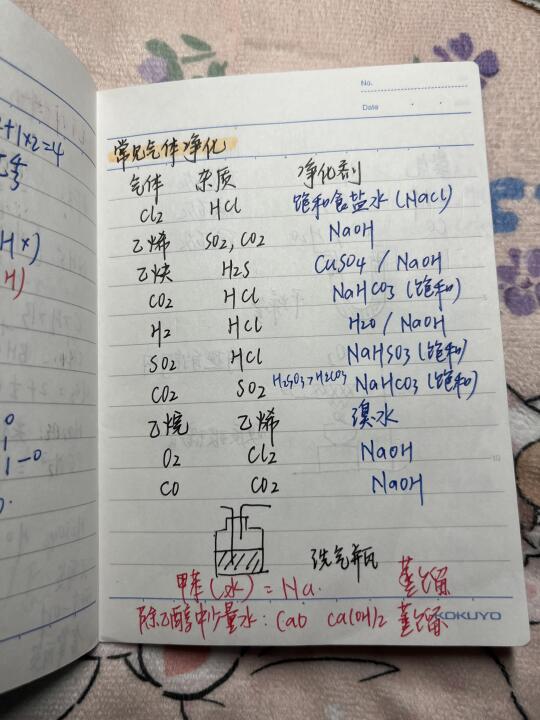 2+1×2=4
H×)
H)
0
1
1-0
No.
Date
常见气体净化
气体 杂质 净化剂
Cl2 HCl 饱和食盐水(NaCl)
乙烯 SO2,CO2 NaOH
乙炔 H2S CuSO4 / NaOH
CO2 HCl NaHCO3(饱和)
H2 HCl H2O / NaOH
SO2 HCl NaHSO3(饱和)
CO2 SO2 H2SO3>H2CO3 NaHCO3(饱和)
乙烷 乙烯 溴水
O2 Cl2 NaOH
CO CO2 NaOH
洗气瓶
甲苯(水)=Na. 蒸馏
除乙醇中少量水:CaO Ca(OH)2 蒸馏
KOKUYO